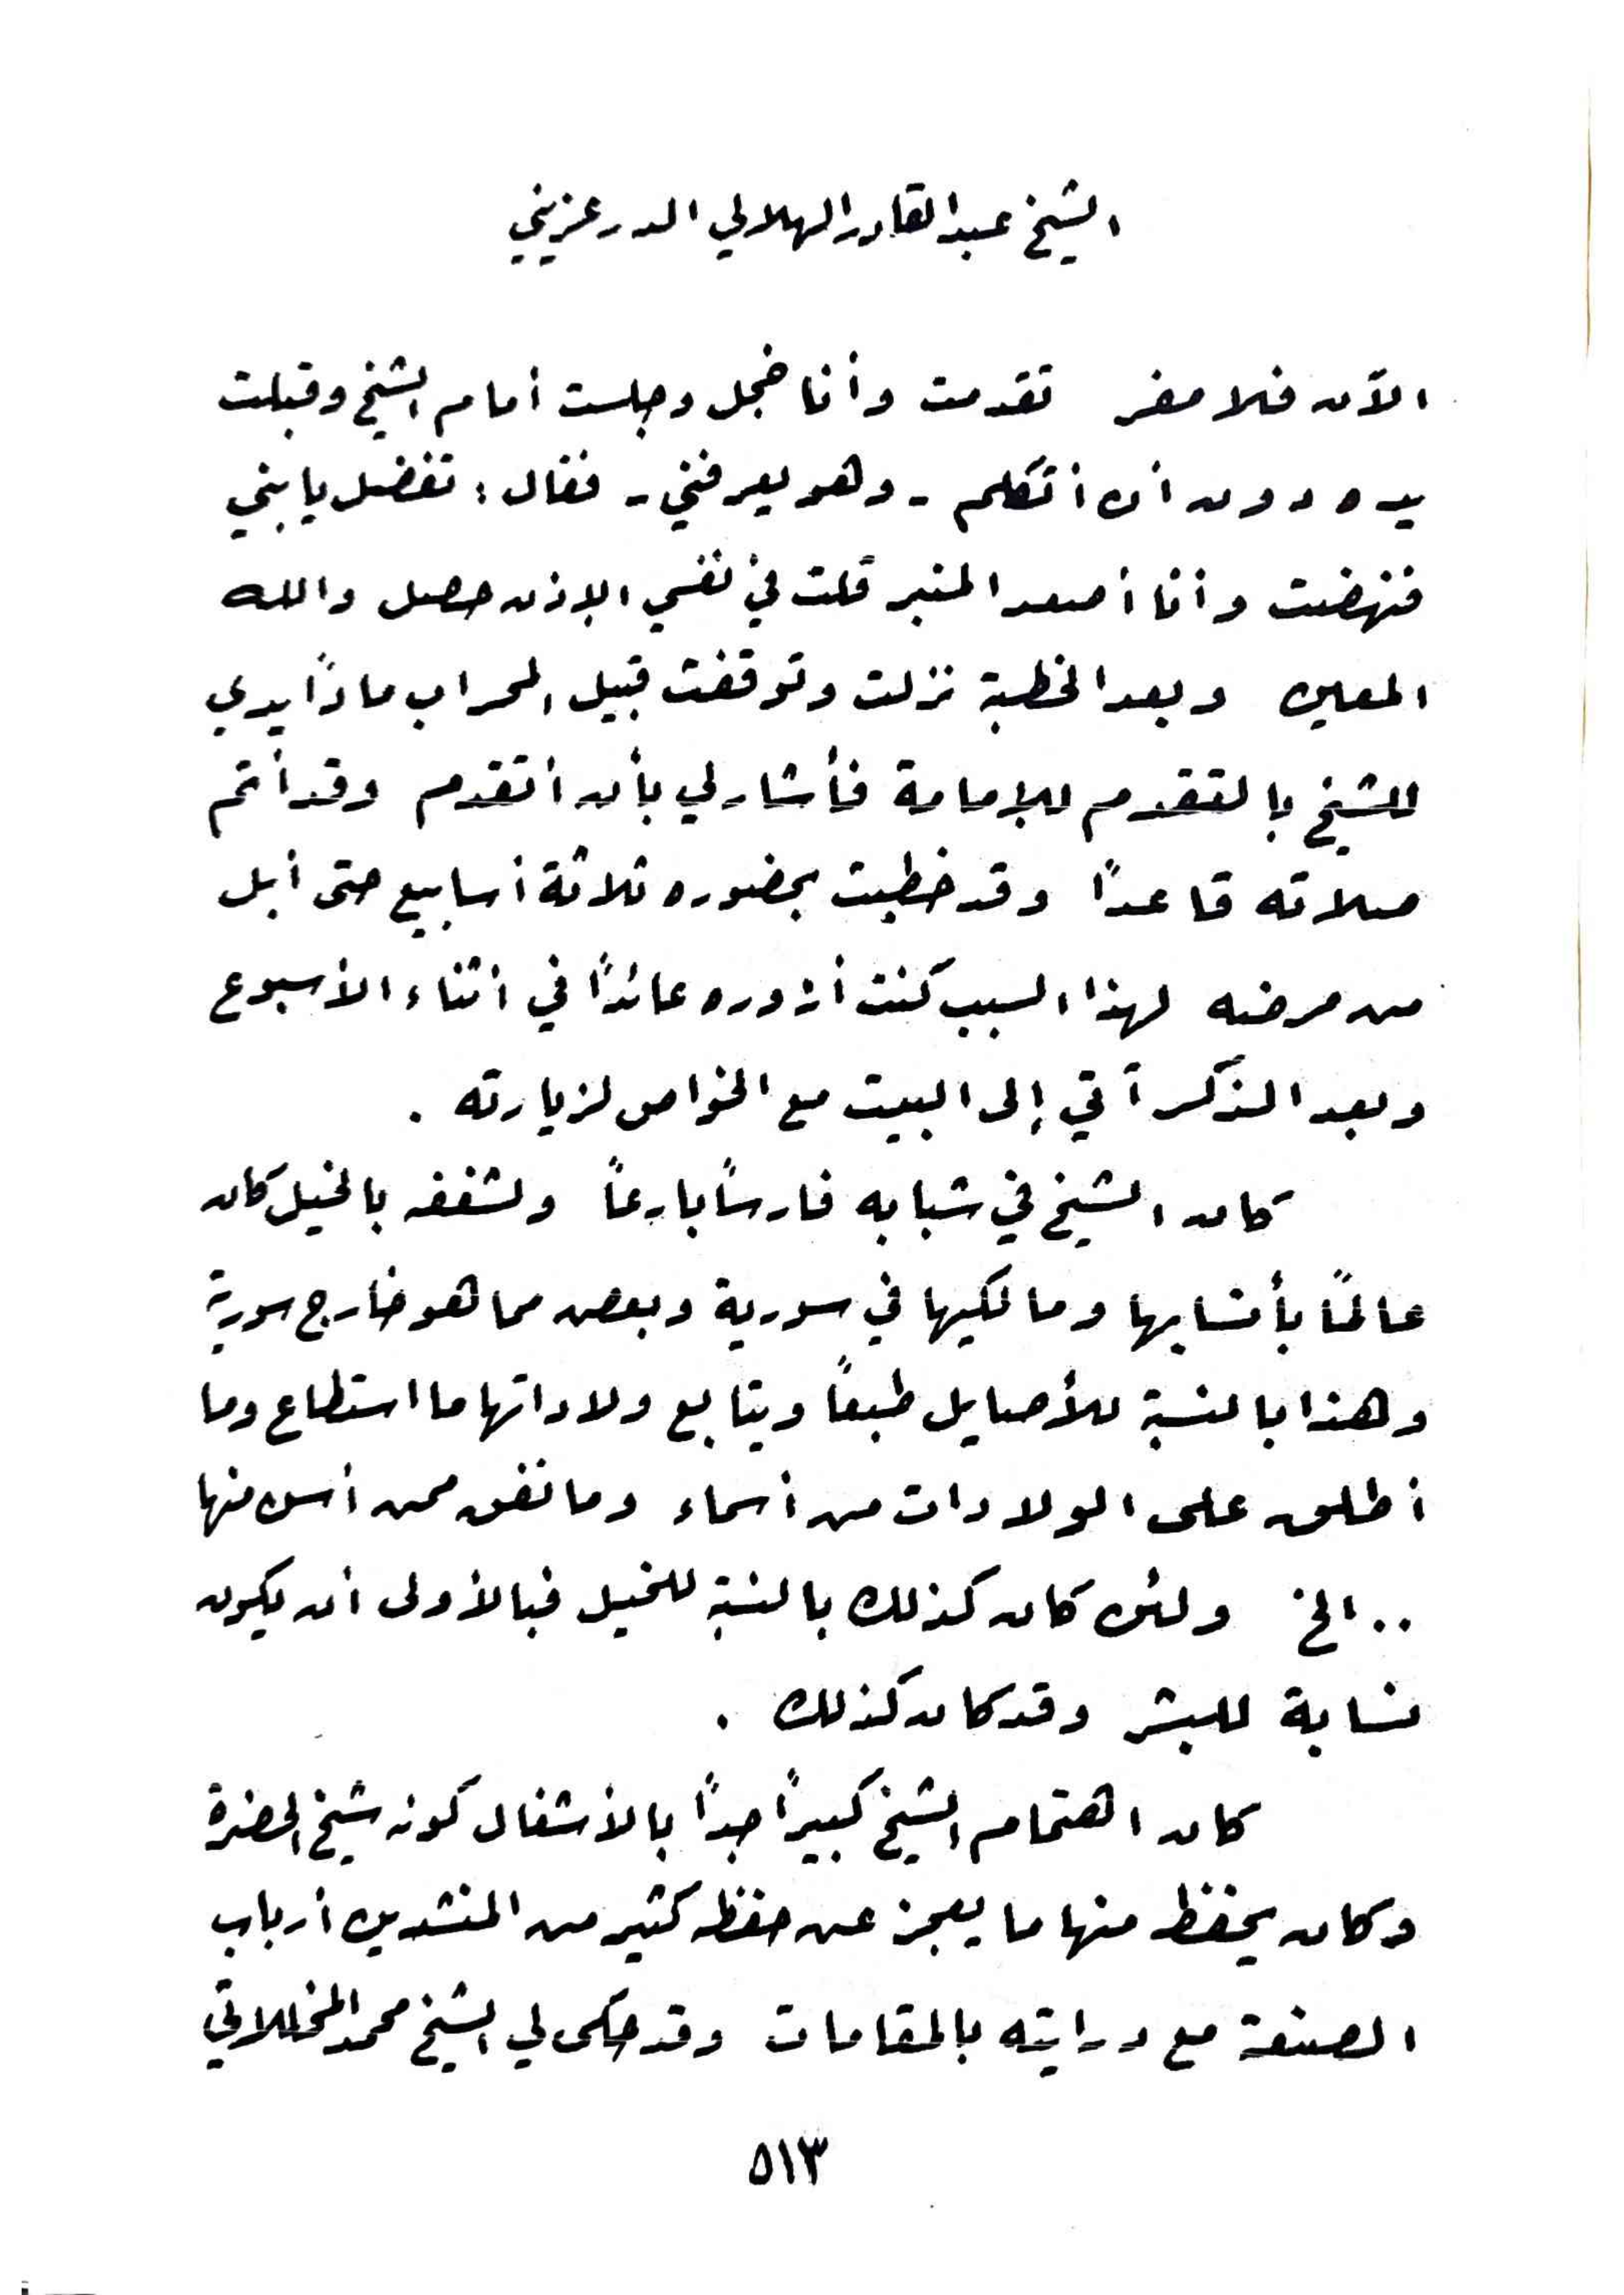 الشيخ عبد القادر الهلالي الدرعزيني
الآن فلا مفر تقدمت وأنا خجل وجلست أمام الشيخ وقبلت
يده دون أن أتكلم - وهو يعرفني - فقال : تفضل يا بني
فنهضت وأنا أصعد المنبر قلت في نفسي الإذن حصل والله
المعين وبعد الخطبة نزلت وتوقفت قبيل المحراب ماداً يدي
للشيخ بالتقدم للإمامة فأشار لي بأن أتقدم وقد أتم
صلاته قاعداً وقد خطبت بحضوره ثلاثة أسابيع حتى أبل
من مرضه لهذا السبب كنت أزوره عائداً في أثناء الأسبوع
وبعد الذكر آتي إلى البيت مع الخواص لزيارته .
كان الشيخ في شبابه فارساً بارعاً ولشغفه بالخيل كان
عالماً بأنسابها ومالكيها في سورية وبعض مما هو خارج سورية
وهذا بالنسبة للأصايل طبعاً ويتابع ولاداتها ما استطاع وما
أطلق على الولادات من أسماء وما نفق ممن أسن منها
.. الخ ولئن كان كذلك بالنسبة للخيل فبالأولى أن يكون
نسابة للبشر وقد كان كذلك .
كان اهتمام الشيخ كبيراً جداً بالأشغال كونه شيخ الحضرة
وكان يحفظ منها ما يعجز عن حفظه كثير من المنشدين أرباب
الصنعة مع درايته بالمقامات وقد حكى لي الشيخ محمد المخللاتي
٥١٣